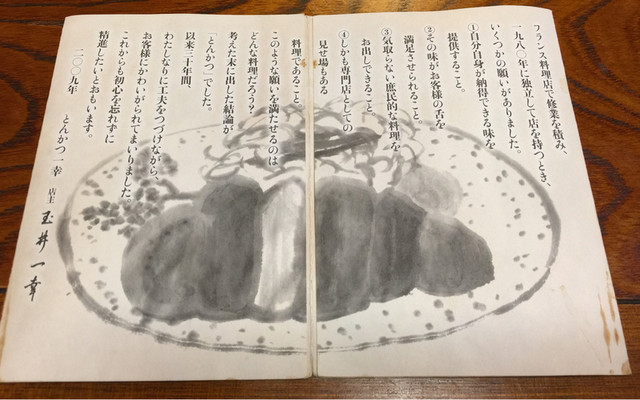 フランス料理店で修業を積み、
一九八〇年に独立して店を持つとき、
いくつかの願いがありました。
①自分自身が納得できる味を
提供すること。
②その味がお客様の舌を
満足させられること。
③気取らない庶民的な料理を
お出しできること。
④しかも専門店としての
見せ場もある
料理であること
このような願いを満たせるのは
どんな料理だろう？
考えた末に出した結論が
「とんかつ」でした。
以来三十年間、
わたしなりに工夫をつづけながら、
お客様にかわいがられてまいりました。
これからも初心を忘れずに
精進したいとおもいます。
二〇〇九年　とんかつ一幸
店主　玉井一幸